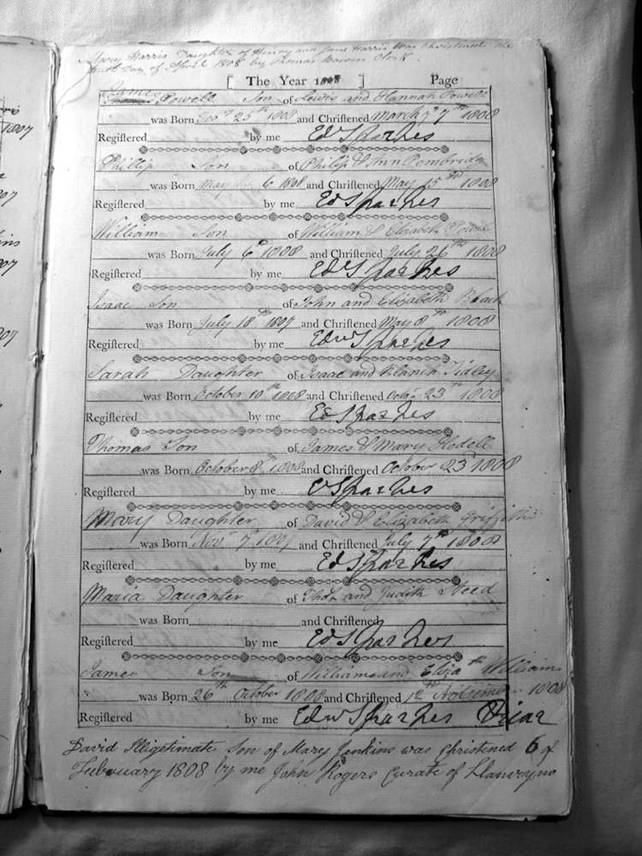 Mary Harris Daughter of Henry and Jane Harris was Christened the
Day of April 1808 by Thomas Clerk
[ The Year 1808 ] Page
James Powell Son of Lewis and Hannah Powell
was Born 25th 1808 and Christened March 7th 1808
Registered by me Ed Sparkes
Phillip Son of Philip & Ann Pembridge
was Born May 6 1808 and Christened May 15th 1808
Registered by me Ed Sparkes
William Son of William & Elizabeth
was Born July 6th 1808 and Christened July 26th 1808
Registered by me Ed Sparkes
Isaac Son of John and Elizabeth
was Born July 18th 1807 and Christened May 8th 1808
Registered by me Edw Sparkes
Sarah Daughter of Isaac and Blanch Tidley
was Born October 10th 1808 and Christened Octr 23rd 1808
Registered by me Ed Sparkes
Thomas Son of James & Mary
was Born October 8th 1808 and Christened October 23rd 1808
Registered by me E Sparkes
Mary Daughter of David & Elizabeth Griffiths
was Born Novr 7 1807 and Christened July 7th 1808
Registered by me Ed Sparkes
Maria Daughter of Thos and Judith Steed
was Born and Christened
Registered by me Ed Sparkes
James Son of William and Elizath Williams
was Born 26th October 1808 and Christened 12th November 1808
Registered by me Edw Sparkes Vicar
David Illigitimate Son of Mary Jenkins was christened 6 of
February 1808 by me John Rogers Curate of Llanveyno